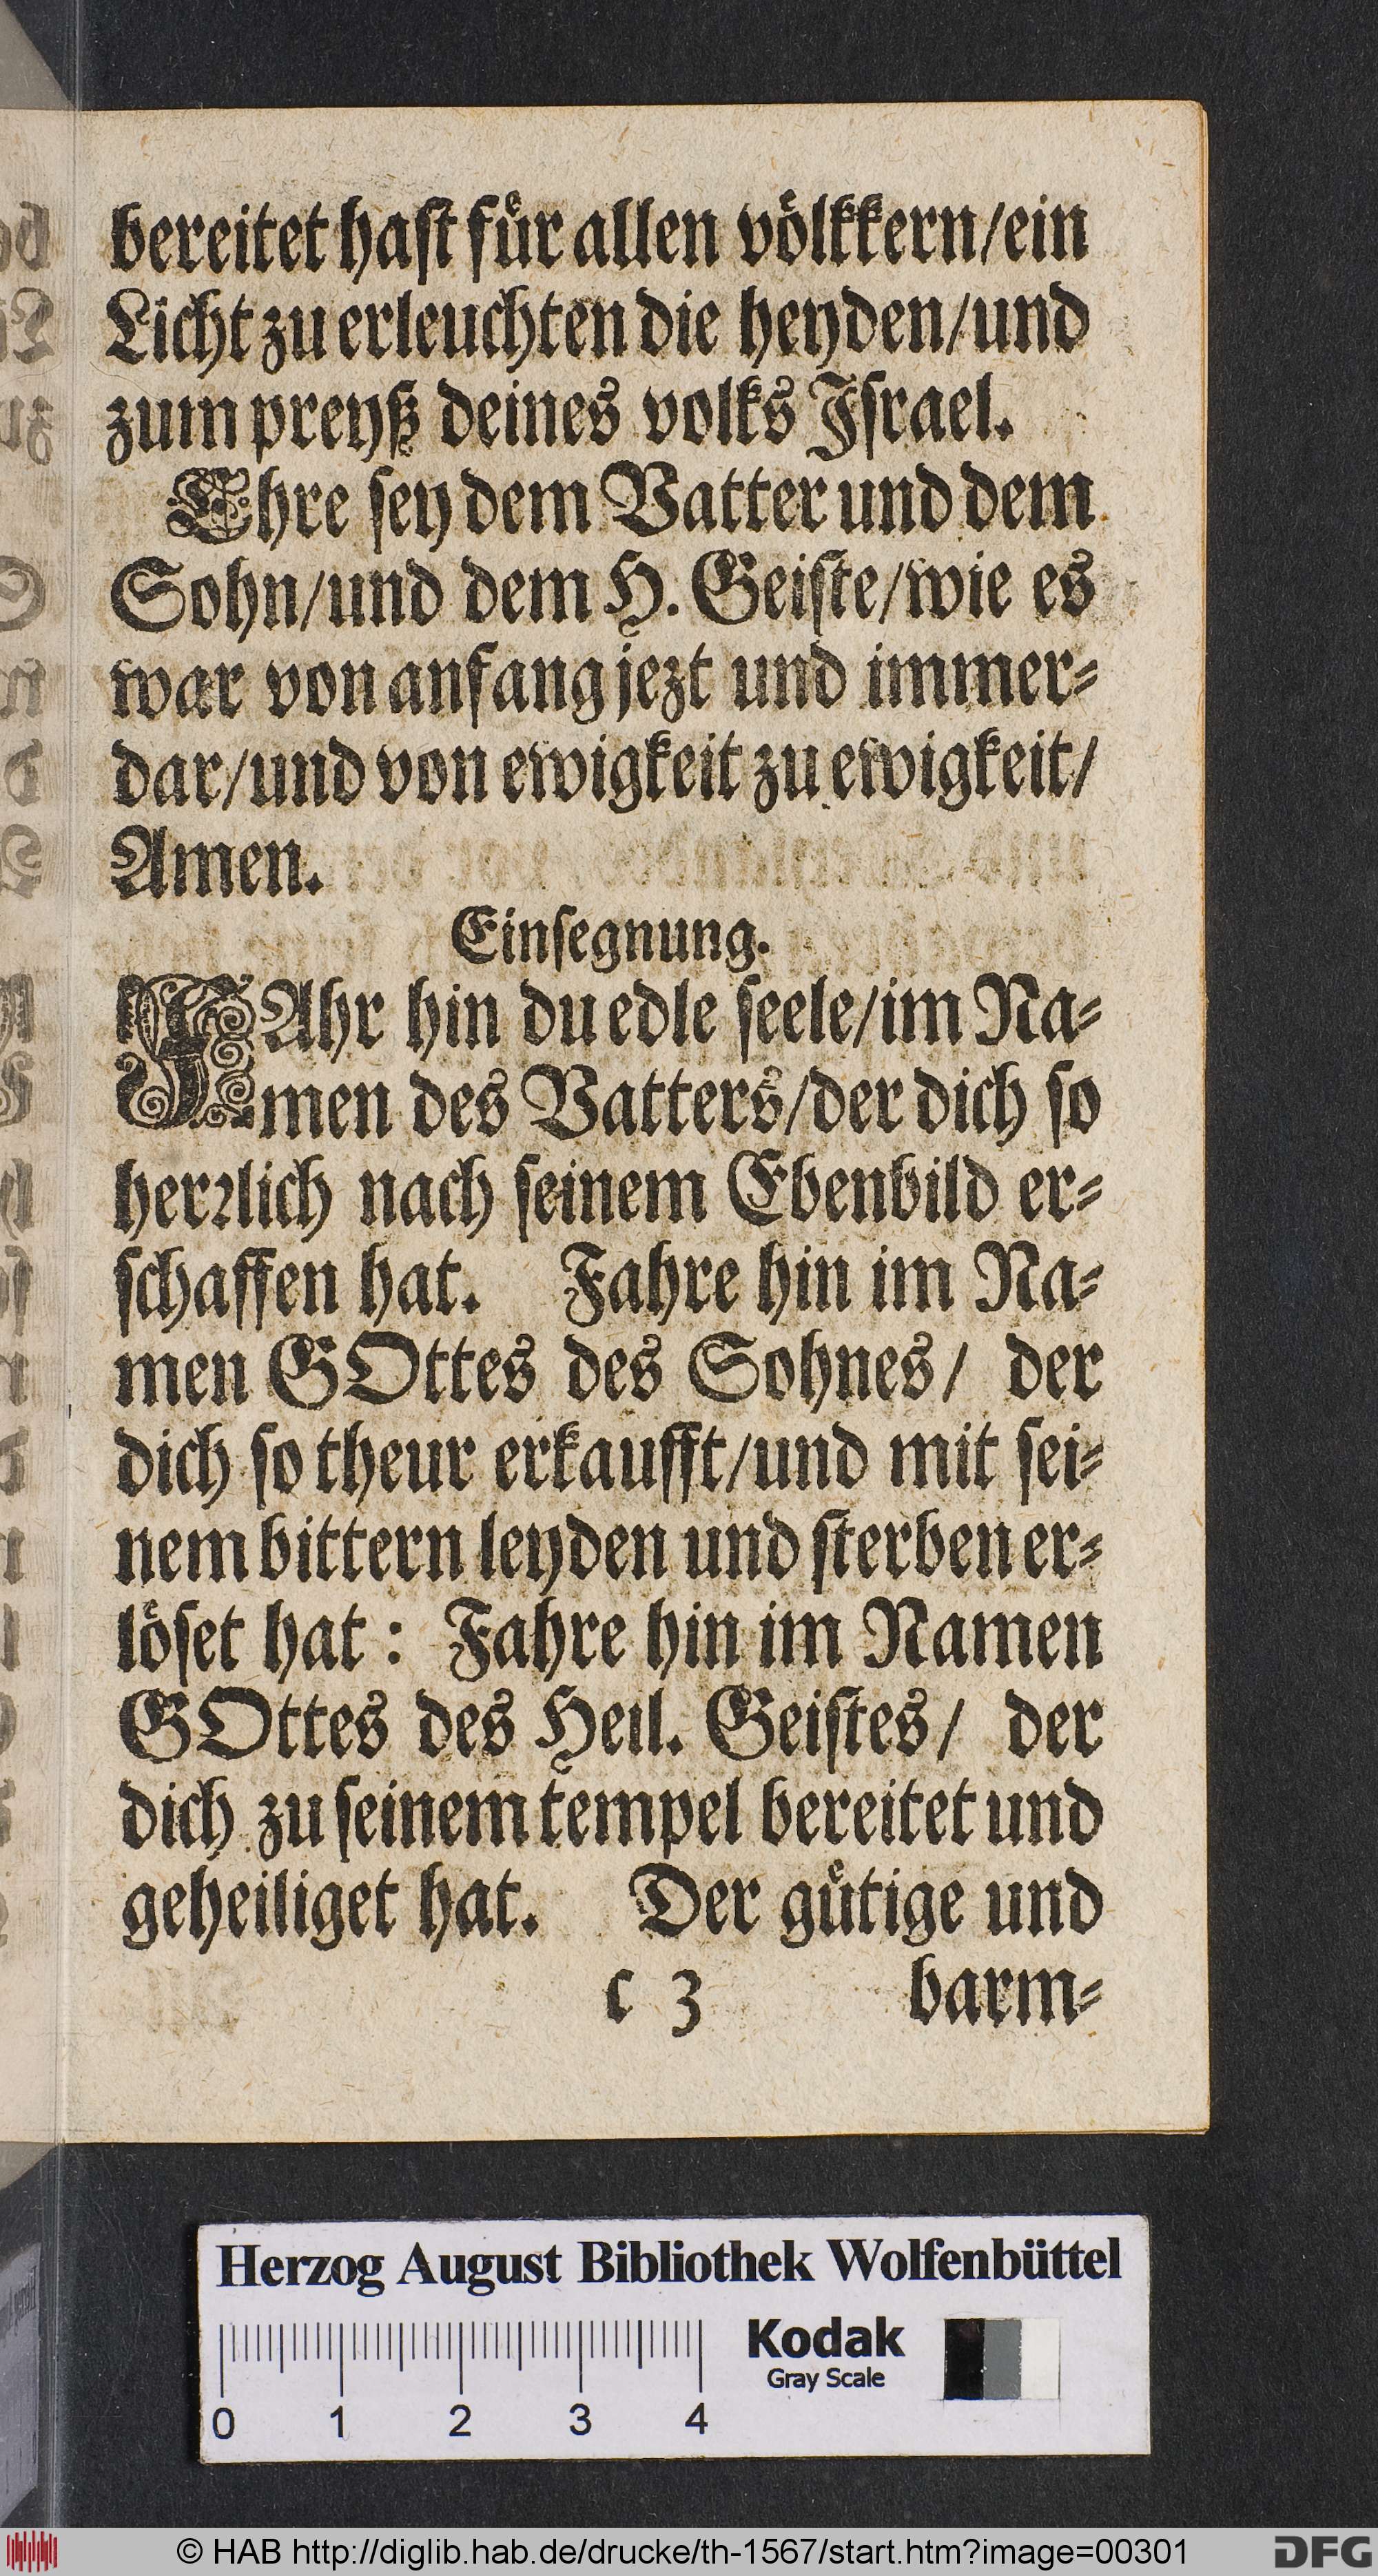 bereitet haſt fuͤr allen voͤlkkern/ein
Licht zu erleuchten die heyden/und
zum preyß deines volks Iſrael.
Ehre ſey dem Vatter und dem
Sohn/und dem H. Geiſte/wie es
war von anfang jezt und immer⸗
dar/und von ewigkeit zu ewigkeit/
Amen.
Einſegnung.
FAhr hin du edle ſeele/im Na⸗
men des Vatters/der dich ſo
herꝛlich nach ſeinem Ebenbild er⸗
ſchaffen hat. Fahre hin im Na⸗
men GOttes des Sohnes/ der
dich ſo theur erkaufft/und mit ſei⸗
nem bittern leyden und ſterben er⸗
loͤſet hat: Fahre hin im Namen
GOttes des Heil. Geiſtes/ der
dich zu ſeinem tempel bereitet und
geheiliget hat. Der guͤtige und
c 3 barm⸗
Herzog August Bibliothek Wolfenbüttel
Kodak
Gray Scale
0 1 2 3 4
© HAB http://diglib.hab.de/drucke/th-1567/start.htm?image=00301
DFG